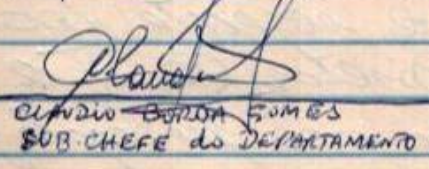 Claudio
CLAUDIO BORBA GOMES
SUB.CHEFE do DEPARTAMENTO